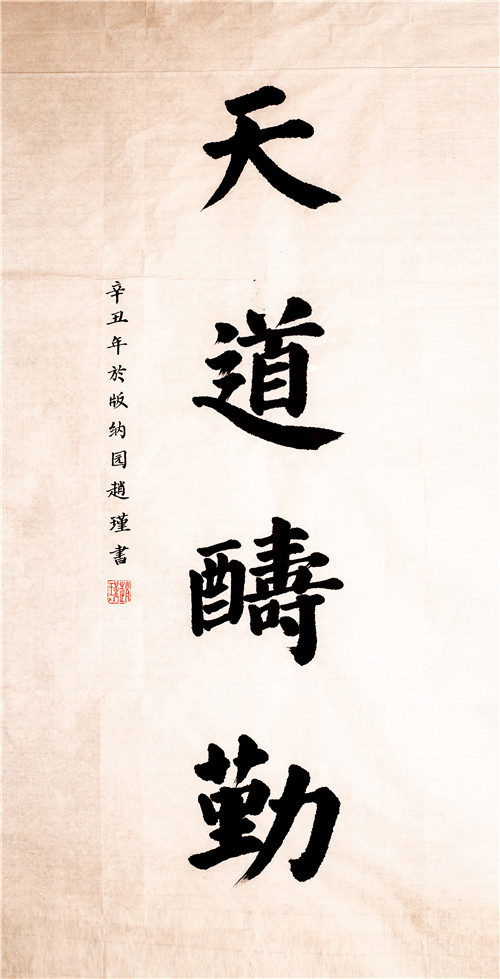 天道醻勤
辛丑年於版纳园趙瑾書